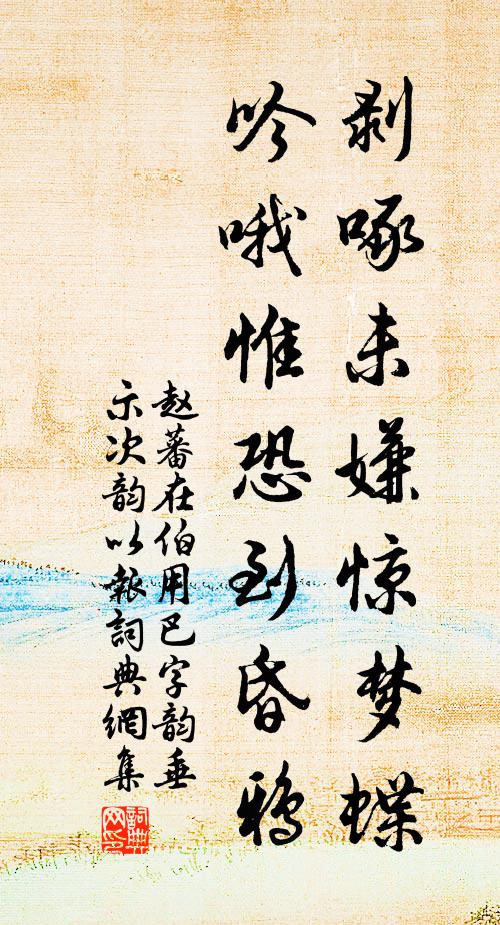 剥啄未嫌惊梦蝶
吟哦惟恐到昏鸦
赵蕃在伯用巴字韵垂
示次韵以报詞典網集
詞典网印